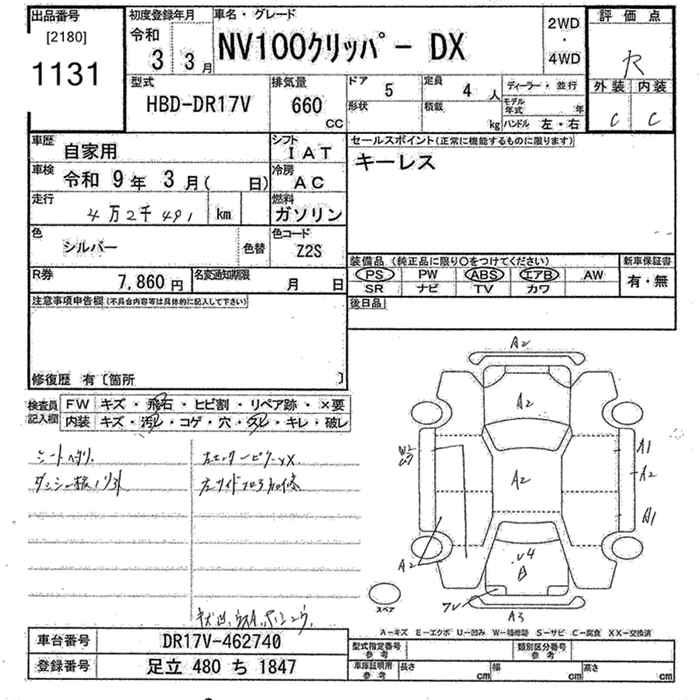 出品番号
[2180]
1131
初度登録年月
令和
3 3月
車名・グレード
NV100クリッパー DX
2WD
・
4WD
評価点
R
外装 内装
C C
型式
HBD-DR17V
排気量
660
CC
ドア
5
定員
4 人
形状
積載
kg
ディーラー・並行
モデル年式 年
ハンドル 左・右
車歴
自家用
シフト
IAT
車検
令和 9年 3月( 日)
冷房
AC
走行
4万2千491
km
燃料
ガソリン
色
シルバー
色替
色コード
Z2S
R券
7,860円
名変通知期限
月 日
セールスポイント(正常に機能するものに限ります)
キーレス
装備品 (純正品に限り○をつけてください)
PS PW ABS エアB AW
SR ナビ TV カワ
新車保証書
有・無
後日品
注意事項申告欄(不具合内容等は具体的に記入して下さい)
修復歴 有〔箇所 〕
検査員記入欄
FW キズ・飛石・ヒビ割・リペア跡・×要
内装 キズ・汚レ・コゲ・穴・スレ・キレ・破レ
A2
A2
A2
W2
A1
A2
A1
A2
A3
スペア
A-キズ E-エクボ U-凹み W-補修跡 S-サビ C-腐食 XX-交換済
車台番号
DR17V-462740
登録番号
足立 480 ち 1847
型式指定番号
参考
類別区分番号
参考
車庫証明用
参考
長さ cm
幅 cm
高さ cm